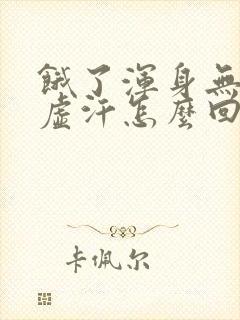 餓了渾身無
虛汗怎麼回
卡佩尔